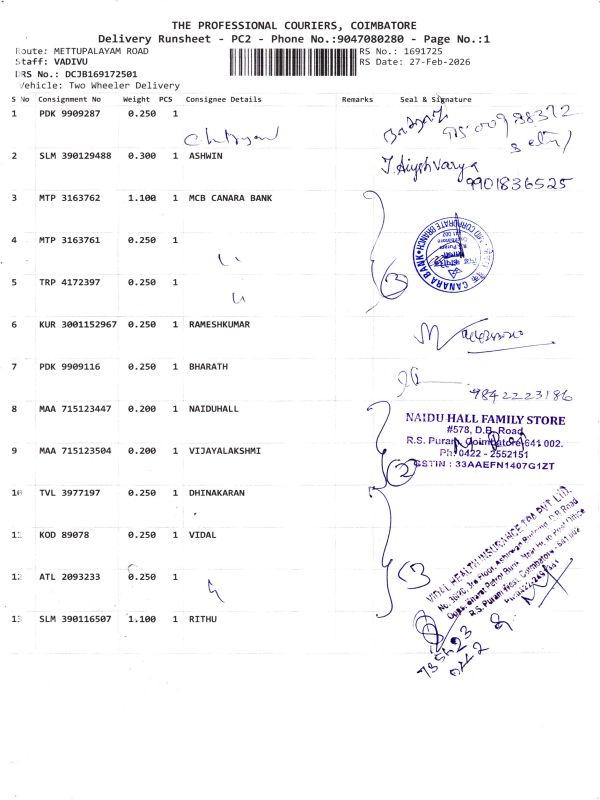 THE PROFESSIONAL COURIERS, COIMBATORE
Delivery Runsheet - PC2 - Phone No.:9047080280 - Page No.:1
Route: METTUPALAYAM ROAD
RS No.: 1691725
Staff: VADIVU
RS Date: 27-Feb-2026
DRS No.: DCJB169172501
Vehicle: Two Wheeler Delivery
S No Consignment No Weight PCS Consignee Details Remarks Seal & Signature
1 PDK 9909287 0.250 1
2 SLM 390129488 0.300 1 ASHWIN
T. Aiyshvarya
9901836525
3 MTP 3163762 1.100 1 MCB CANARA BANK
4 MTP 3163761 0.250 1
CANARA BANK
3
5 TRP 4172397 0.250 1
6 KUR 3001152967 0.250 1 RAMESHKUMAR
7 PDK 9909116 0.250 1 BHARATH
9842223186
8 MAA 715123447 0.200 1 NAIDUHALL
NAIDU HALL FAMILY STORE
#578, D.B. Road
R.S. Puram, Coimbatore-641 002.
Ph: 0422 - 2552151
GSTIN : 33AAEFN1407G1ZT
9 MAA 715123504 0.200 1 VIJAYALAKSHMI
2
10 TVL 3977197 0.250 1 DHINAKARAN
11 KOD 89078 0.250 1 VIDAL
12 ATL 2093233 0.250 1
3
VIDAL HEALTH INSURANCE TPA PVT LTD.
13 SLM 390116507 1.100 1 RITHU